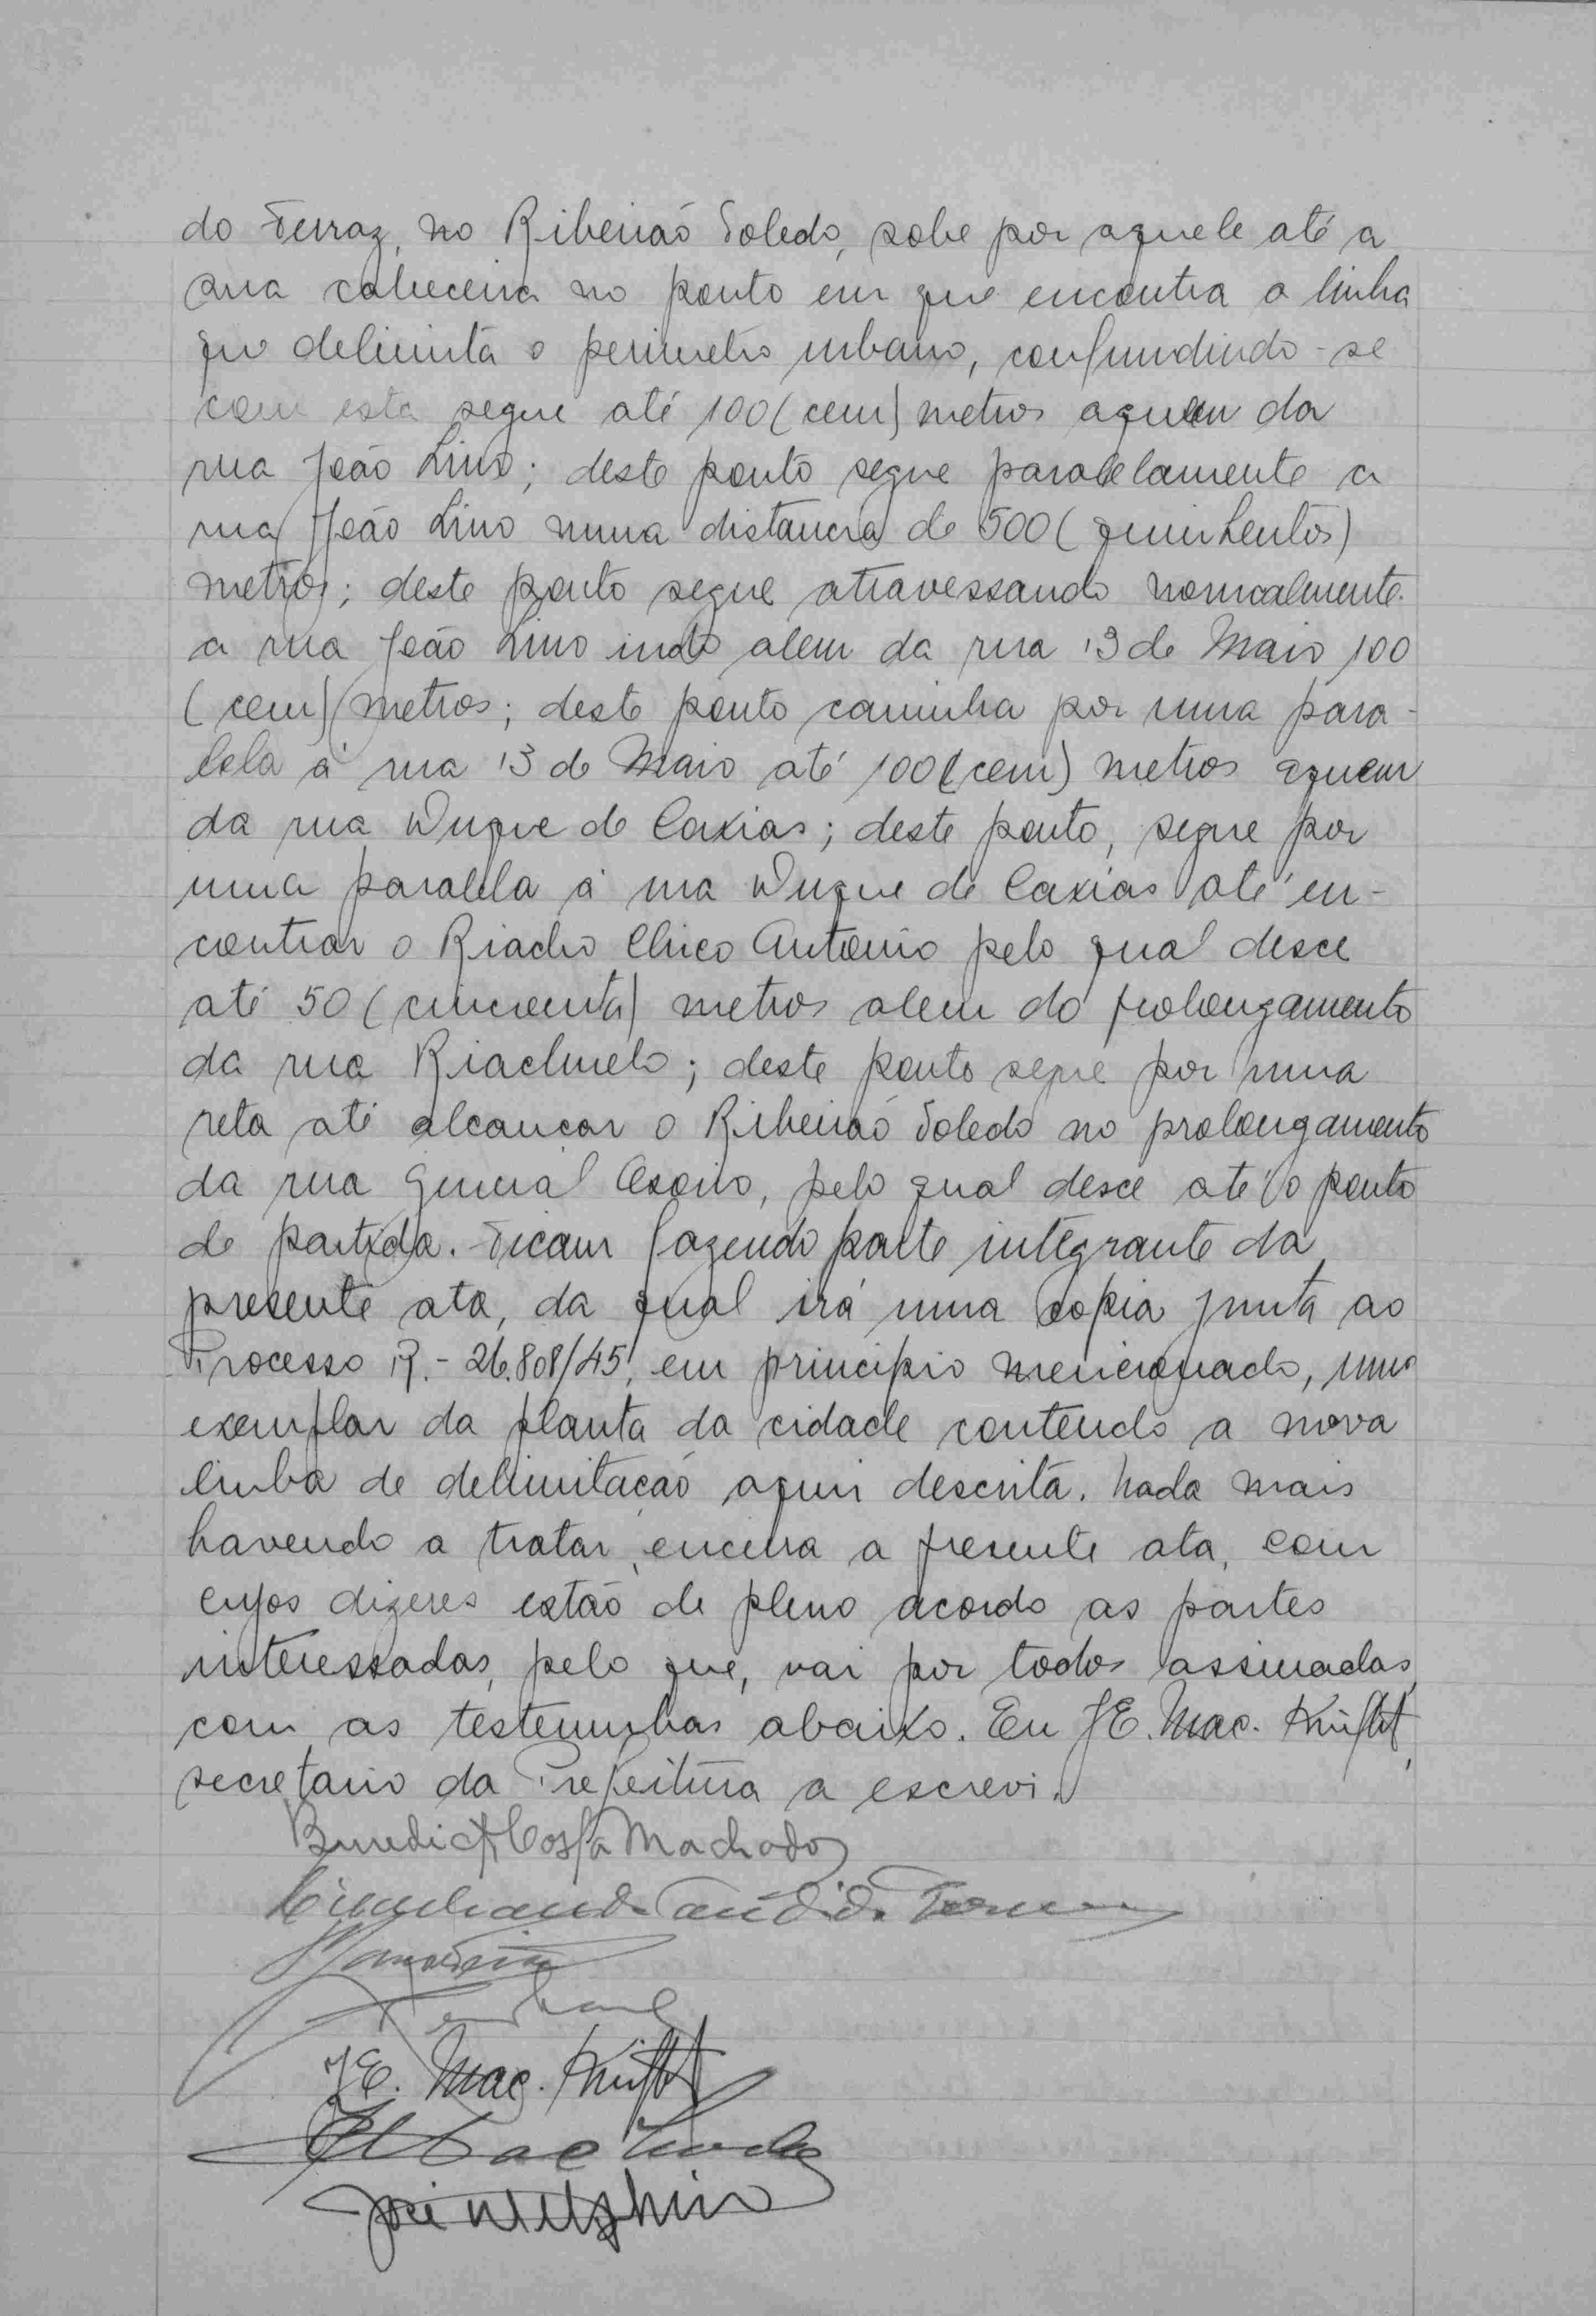 do Ferraz, no Ribeirão Toledo, sobe por aquele até a
sua cabeceira no ponto em que encontra a linha
que delimita o perimetro urbano, confundindo-se
com esta segue até 100 (cem) metros aquem da
rua João Lino; deste ponto segue paralelamente a
rua João Lino numa distancia de 500 (quinhentos)
metros; deste ponto segue atravessando normalmente
a rua João Lino indo alem da rua 13 de Maio 100
(cem) metros; deste ponto caminha por uma para-
lela á rua 13 de Maio até 100 (cem) metros aquem
da rua Duque de Caxias; deste ponto, segue por
uma paralela á rua Duque de Caxias até en-
contrar o Riacho Chico Antonio pelo qual desce
até 50 (cincoenta) metros alem do prolongamento
da rua Riachuelo; deste ponto segue por uma
reta até alcançar o Ribeirão Toledo no prolongamento
da rua General Osorio, pelo qual desce até o ponto
de partida. Ficam fazendo parte integrante da
presente ata, da qual irá uma copia junta ao
Processo R.-26.808/45, em principio mencionado, um
exemplar da planta da cidade contendo a nova
linha de delimitação aqui descrita. Nada mais
havendo a tratar, encerra a presente ata, com
cujos dizeres estão de pleno acordo as partes
interessadas, pelo que, vai por todos assinadas,
com as testemunhas abaixo. Eu J E. Mac. Knight,
secretario da Prefeitura a escrevi.
Benedicto Costa Machado
Candido
J E. Mac. Knight
Machado
José